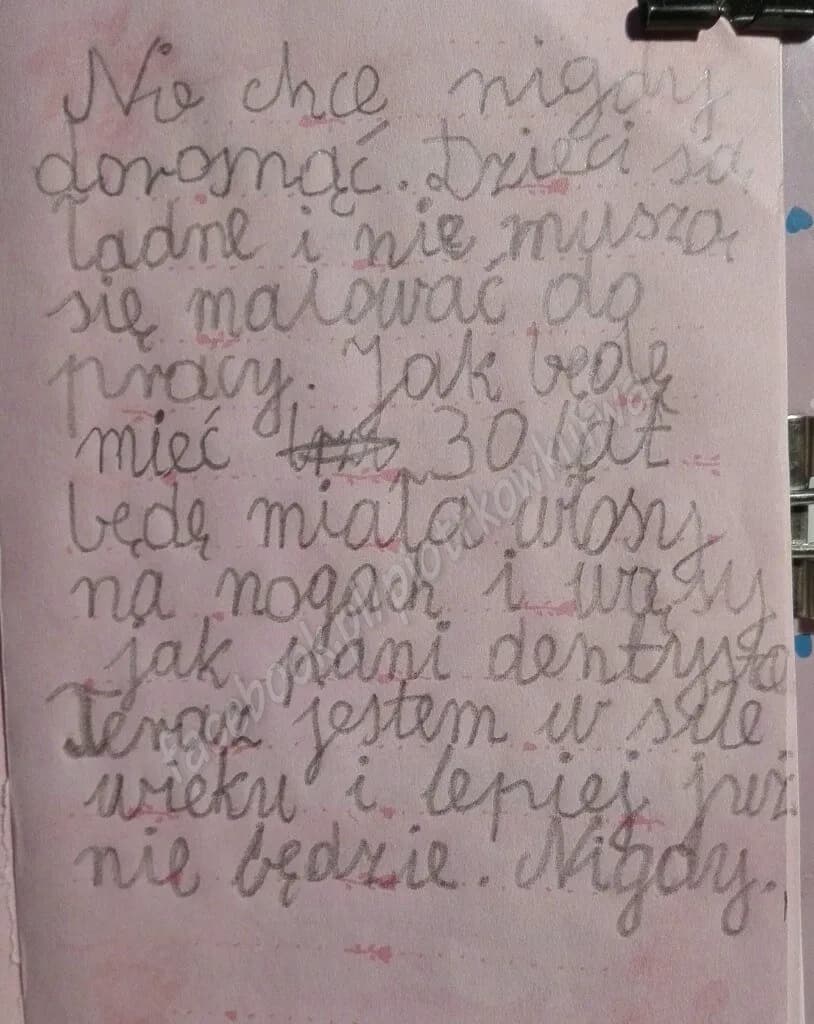 Nie chcę nigdy
doromąć. Dzieci są
ładne i nie muszą
się malować do
pracy. Jak będę
mieć 30 lat
będę miała włosy
na nogach i wąsy
jak pani dentysta
Teraz jestem w sile
wieku i lepiej już
nie będzie. Nigdy.
facebook.pl/piotrkowkujwa